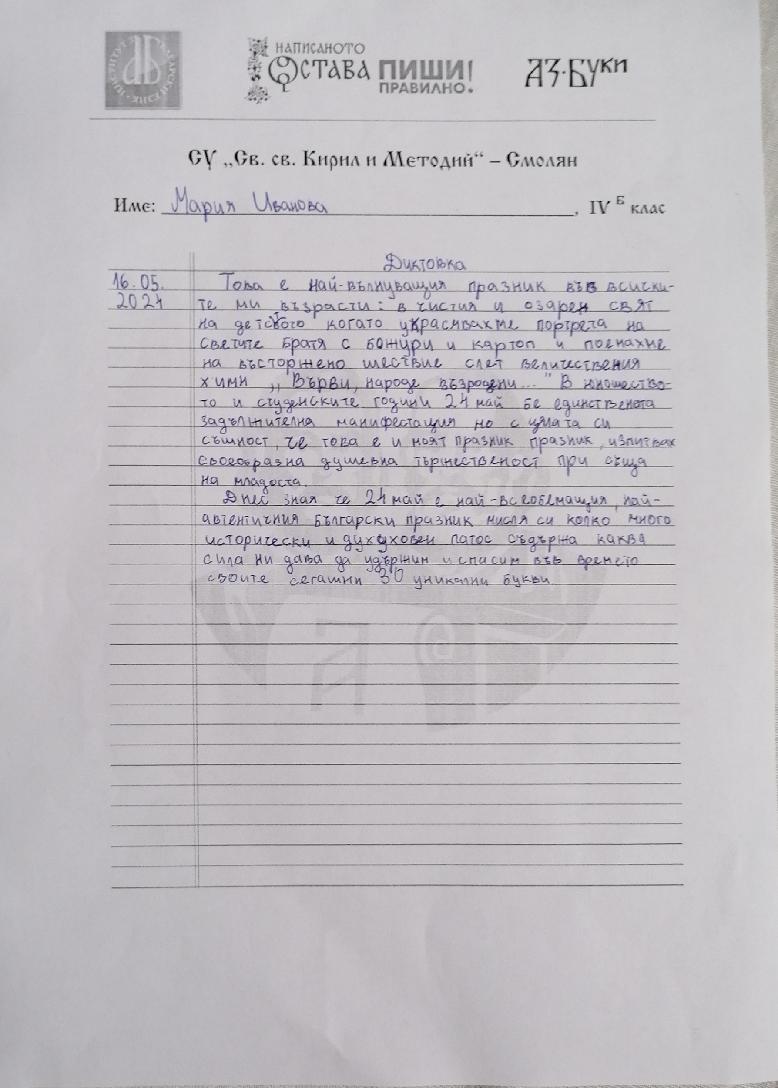 НАПИСАНОТО
ОСТАВА ПИШИ!
ПРАВИЛНО.
АЗ·БУКИ
СУ „Св. св. Кирил и Методий“ – Смолян
Име: Мария Иванова, IV Б клас
Диктовка
16.05. Това е най-вълнуващия празник във всиски-
2024 те ми възрасти: в чистия и озарен свят
на детсkого когато украсявахме портрета на
Светите братя с божури и картоп и поемахме
на въсторжено шествие слет величествения
химн ,, Върви, народе възродени..." В юношество-
то и студенските години 24 май бе единствената
задължителна манифестация но с цялата си
същност, че това е и моят празник празник, изпитвах
своеобразна душевна тържественост при съща
на младоста.
Днес зная че 24 май е най-всеобемащия, най-
автентичния Български празник мисля си колко много
исторически и духуховен патос съдържа каква
сила ни дава да удържим и спасим във времето
своите сегашни 30 уникални букви